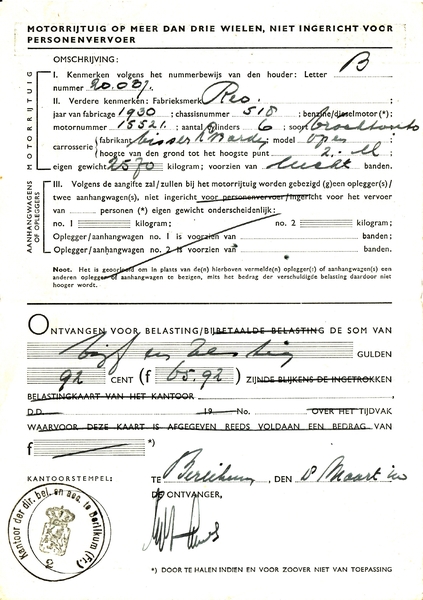 MOTORRIJTUIG OP MEER DAN DRIE WIELEN, NIET INGERICHT VOOR
PERSONENVERVOER
OMSCHRIJVING:
MOTORRIJTUIG
I. Kenmerken volgens het nummerbewijs van den houder: Letter B
nummer 20.007.
II. Verdere kenmerken: Fabrieksmerk Reo.
jaar van fabricage 1930; chassisnummer 518; benzine/dieselmotor (*);
motornummer 15521; aantal cylinders 6; soort
carrosserie (fabrikant Visser model open
(hoogte van den grond tot het hoogste punt 2. M
eigen gewicht 2570 kilogram; voorzien van lucht banden.
AANHANGWAGENS
OF OPLEGGERS
III. Volgens de aangifte zal/zullen bij het motorrijtuig worden gebezigd (g)een oplegger(s)/
twee aanhangwagen(s), niet ingericht voor personenvervoer/ingericht voor het vervoer
van personen (*) eigen gewicht onderscheidenlijk:
no. 1 kilogram; no. 2 kilogram;
Oplegger/aanhangwagen no. 1 is voorzien van banden.
Oplegger/aanhangwagen no. 2 is voorzien van banden.
Noot. Het is geoorloofd om in plaats van de(n) hierboven vermelde(n) oplegger(s) of aanhangwagen(s) een
anderen oplegger of aanhangwagen te bezigen, mits het bedrag der verschuldigde belasting daardoor niet
hooger wordt.
ONTVANGEN VOOR BELASTING/BIJBETAALDE BELASTING DE SOM VAN
vijf en zestig GULDEN
92 CENT (f 65.92) ZIJNDE BLIJKENS DE INGETROKKEN
BELASTINGKAART VAN HET KANTOOR
D.D. 19 No. OVER HET TIJDVAK
WAARVOOR DEZE KAART IS AFGEGEVEN REEDS VOLDAAN EEN BEDRAG VAN
f *)
KANTOORSTEMPEL: TE Berlikum, DEN 18 Maart
DE ONTVANGER,
Kantoor der dir. bel. en acc. te Berlikum (Fr.)
2
*) DOOR TE HALEN INDIEN EN VOOR ZOOVER NIET VAN TOEPASSING